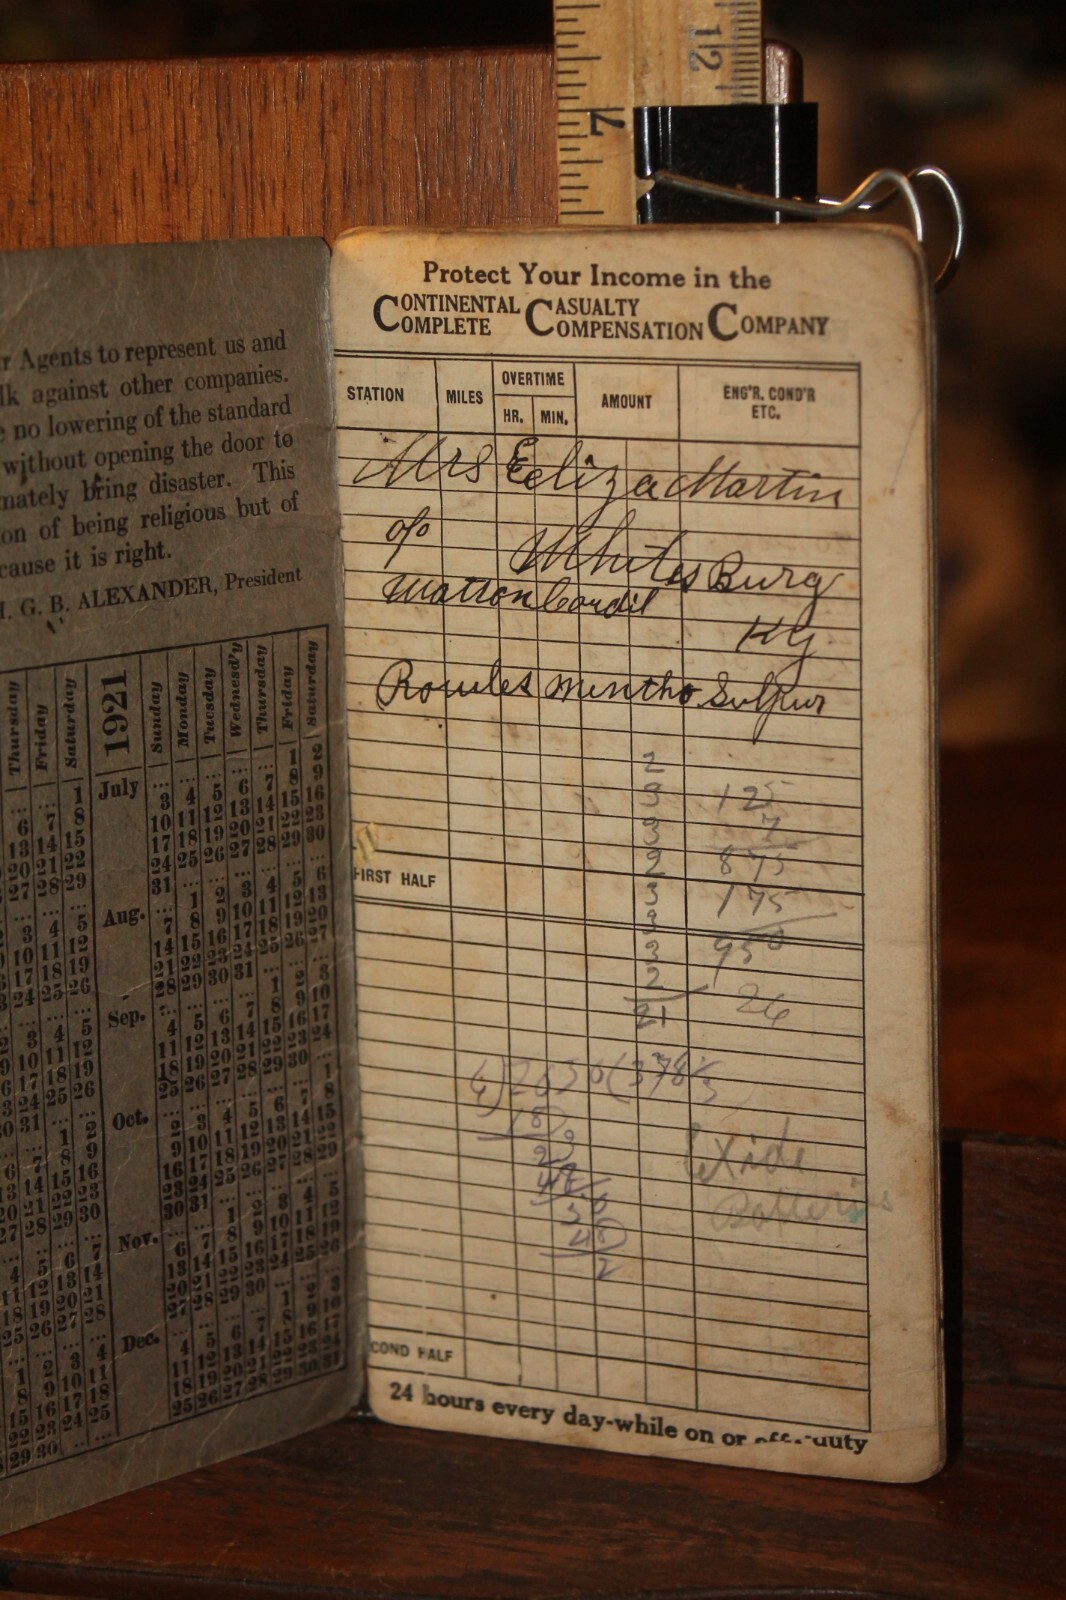 12
7
r Agents to represent us and
lk against other companies.
e no lowering of the standard
without opening the door to
mately bring disaster. This
on of being religious but of
cause it is right.
G. B. ALEXANDER, President
Thursday Friday Saturday 1921 Sunday Monday Tuesday Wednesd'y Thursday Friday Saturday
July ... ... ... ... ... 1 2
3 4 5 6 7 8 9
10 11 12 13 14 15 16
17 18 19 20 21 22 23
24 25 26 27 28 29 30
31 ... ... ... ... ... ...
Aug. ... 1 2 3 4 5 6
7 8 9 10 11 12 13
14 15 16 17 18 19 20
21 22 23 24 25 26 27
28 29 30 31 ... ... ...
Sep. ... ... ... ... 1 2 3
4 5 6 7 8 9 10
11 12 13 14 15 16 17
18 19 20 21 22 23 24
25 26 27 28 29 30 ...
Oct. ... ... ... ... ... ... 1
2 3 4 5 6 7 8
9 10 11 12 13 14 15
16 17 18 19 20 21 22
23 24 25 26 27 28 29
30 31 ... ... ... ... ...
Nov. ... ... 1 2 3 4 5
6 7 8 9 10 11 12
13 14 15 16 17 18 19
20 21 22 23 24 25 26
27 28 29 30 ... ... ...
Dec. ... ... ... ... 1 2 3
4 5 6 7 8 9 10
11 12 13 14 15 16 17
18 19 20 21 22 23 24
25 26 27 28 29 30 31
Protect Your Income in the
CONTINENTAL CASUALTY COMPANY
COMPLETE COMPENSATION
STATION MILES OVERTIME HR. MIN. AMOUNT ENG'R. COND'R ETC.
Mrs Eeliza Martin
c/o Whites Burg
Ky
Mintho Sulpur
2
3 125
3 7
2 875
3 175
3 950
3
2 26
21
6)2650(378
18
2
48
2
Exide
Batteries
FIRST HALF
COND HALF
24 hours every day-while on or off-duty